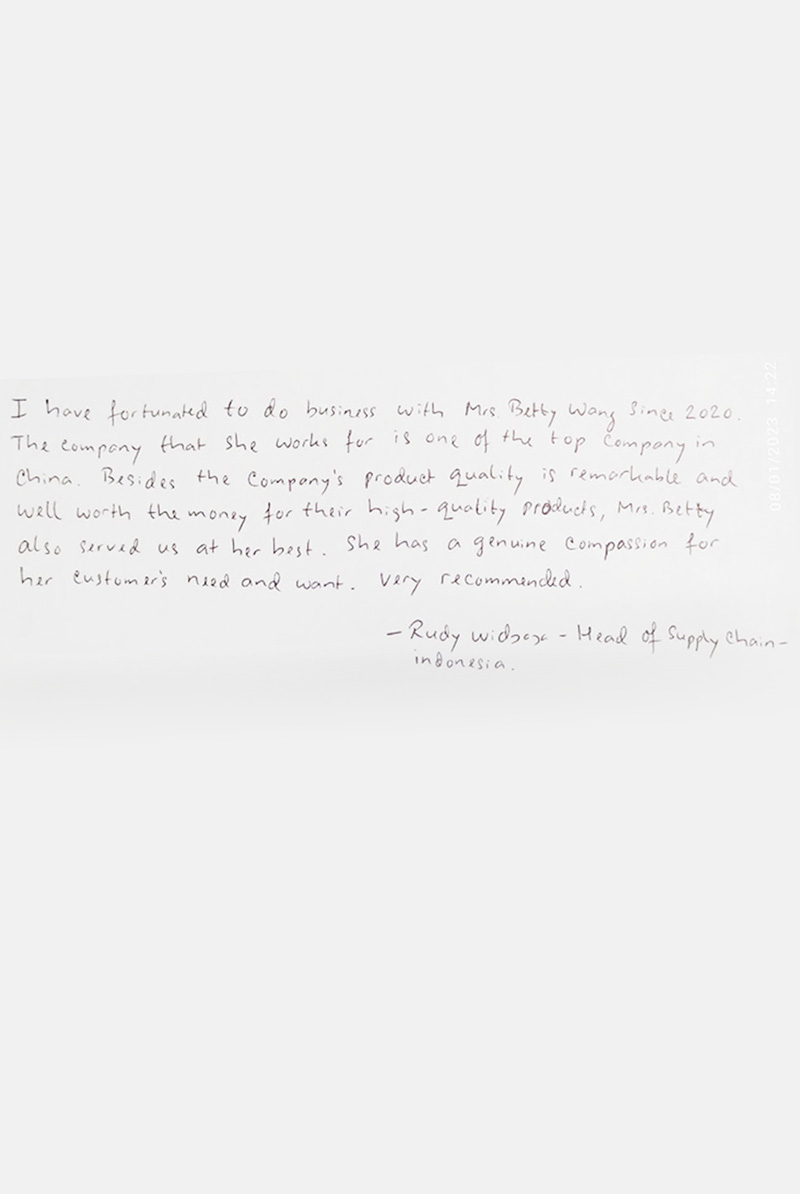 I have fortunated to do business with Mrs. Betty Wang Since 2020.
The company that she works for is one of the top company in
China. Besides the Company's product quality is remarkable and
well worth the money for their high-quality products, Mrs. Betty
also served us at her best. She has a genuine Compassion for
her customer's need and want. Very recommended.
- Rudy - Head of Supply Chain -
indonesia.
08/01/2023 14:22